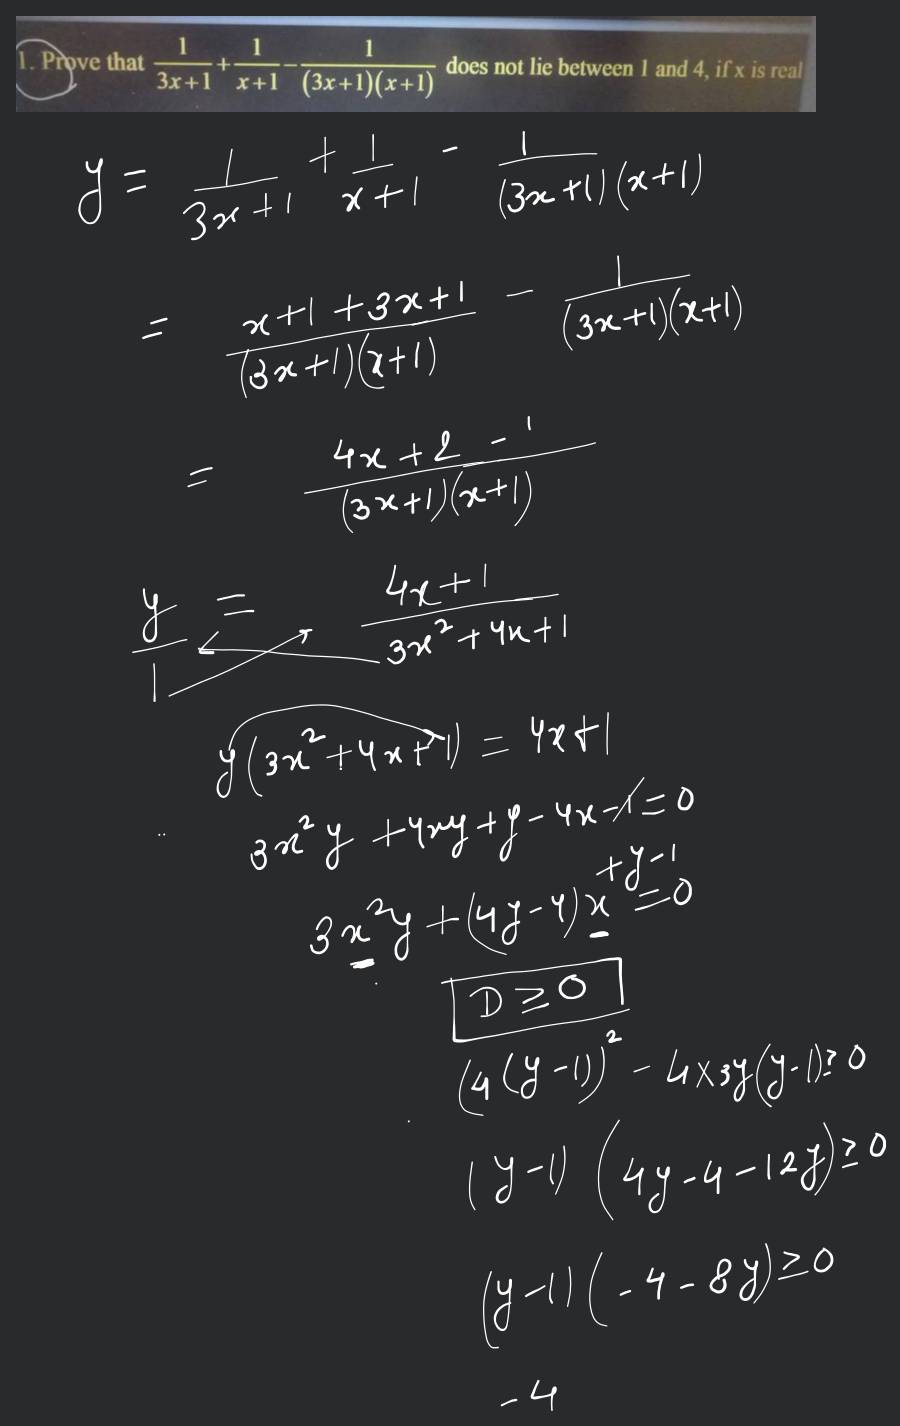 1. Prove that 1/(3x+1) + 1/(x+1) - 1/((3x+1)(x+1)) does not lie between 1 and 4, if x is real
y = 1/(3x+1) + 1/(x+1) - 1/((3x+1)(x+1))
= (x+1+3x+1)/((3x+1)(x+1)) - 1/((3x+1)(x+1))
= (4x+2-1)/((3x+1)(x+1))
y/1 = (4x+1)/(3x²+4x+1)
y(3x²+4x+1) = 4x+1
3x²y +4xy+y-4x-1=0
3x²y+(4y-4)x +y-1 =0
D≥0
(4(y-1))² - 4×3y(y-1)≥0
(y-1) (4y-4-12y)≥0
(y-1)(-4-8y)≥0
-4